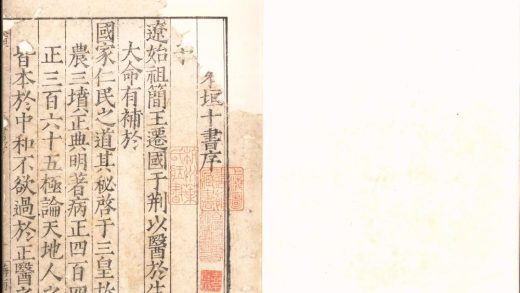 垣十書序
遼始祖簡王遷國于荊以醫於生
大命有補於
國家仁民之道其秘啓于三皇故
農三墳正典明著病正四百四
正三百六十五極論天地人
旨本於中和不欲過於正醫